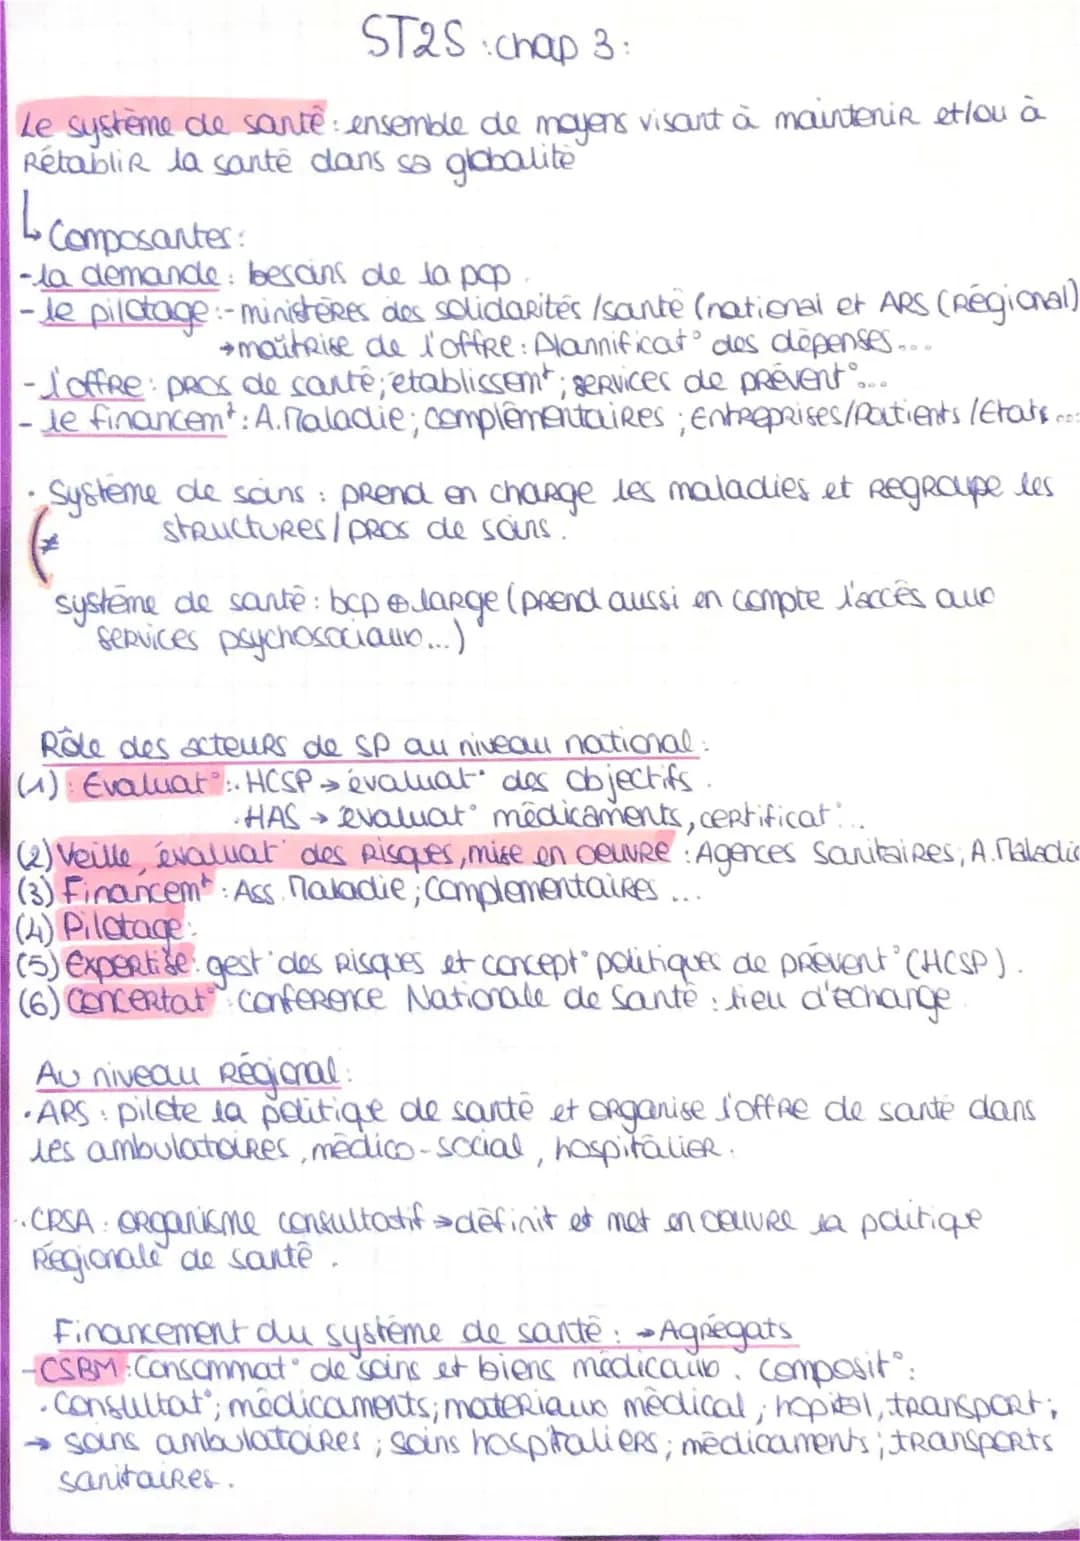 ST2S : chap 3 :
Le système de santé : ensemble de moyens visant à maintenir et/ou à
Rétablir la santé dans sa globalité
↳ Composantes :
- la demande : besoins de la pop.
- le pilotage : - ministères des solidarités / santé (national et ARS (Régional)
→ maîtrise de l'offre : Plannificat° des dépenses...
- l'offre : pros de santé ; etablissem^t ; services de prévent°...
- le financem^t : A. Maladie ; complémentaires ; Entreprises/Patients / Etats ...
• Système de soins : prend en charge les maladies et regroupe les
structures / pros de soins.
≠
système de santé : bcp ⊕ large (prend aussi en compte l'accès aux
services psychosociaux...)
Rôle des acteurs de SP au niveau national :
(1) : Evaluat° : . HCSP → évaluat° des objectifs.
. HAS → évaluat° médicaments, certificat°...
(2) Veille, évaluat° des Risques, mise en oeuvre : Agences Sanitaires, A. Maladie
(3) Financem^t : Ass. Maladie ; Complementaires ...
(4) Pilotage :
(5) Expertise : gest° des Risques et concept° politiques de prévent° (HCSP).
(6) Concertat° : Conférence Nationale de Santé : lieu d'échange
Au niveau Régional :
• ARS : pilote la politiqe de santé et organise l'offre de santé dans
les ambulatoires, médico-social, hospitalier.
• CRSA : organisme consultatif → définit et met en oeuvre la politique
Régionale de santé.
Financement du système de santé : → Agrégats
- CSBM : Consommat° de soins et biens médicaux. composit° :
• Consultat° ; médicaments ; materiaux médical ; hopital, transport ;
→ soins ambulatoires ; soins hospitaliers ; médicaments ; transports
sanitaires.